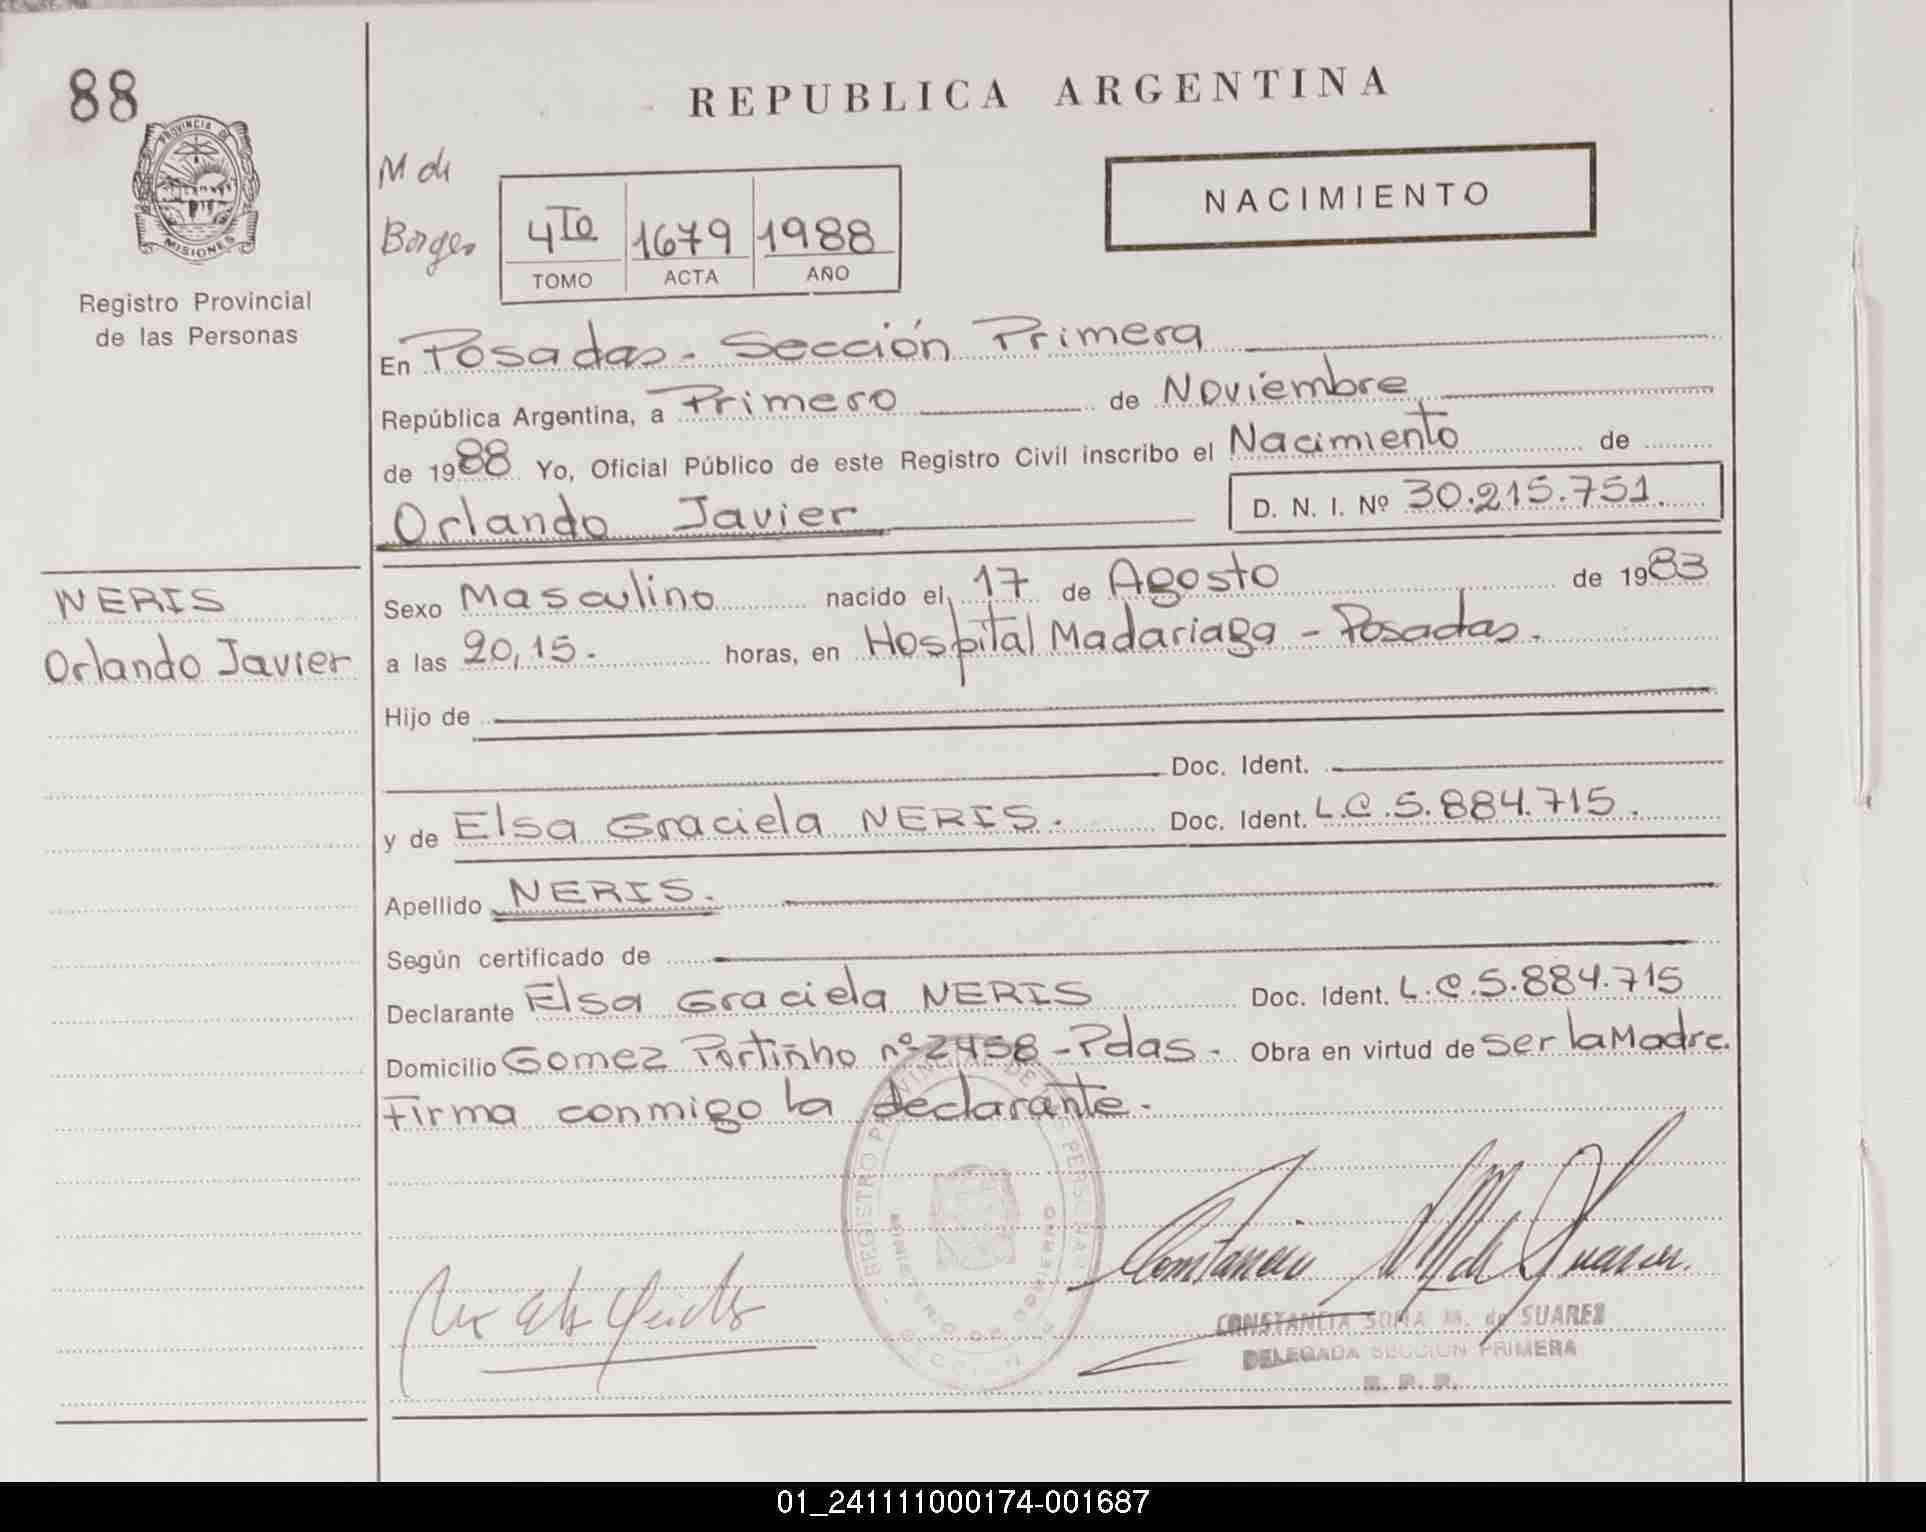 88
REPUBLICA ARGENTINA
PROVINCIA DE
MISIONES
Registro Provincial
de las Personas
M de
Borges
4to 1679 1988
TOMO ACTA AÑO
NACIMIENTO
En Posadas - Sección Primera
República Argentina, a Primero de Noviembre
de 1988 Yo, Oficial Público de este Registro Civil inscribo el Nacimiento de
Orlando Javier D. N. I. Nº 30.215.751.
NERIS
Orlando Javier
Sexo Masculino nacido el 17 de Agosto de 1983
a las 20,15. horas, en Hospital Madariaga - Posadas.
Hijo de
Doc. Ident.
y de Elsa Graciela NERIS. Doc. Ident. L.C.5.884.715.
Apellido NERIS.
Según certificado de
Declarante Elsa Graciela NERIS Doc. Ident. L.C.5.884.715
Domicilio Gomez Portinho nº 2458 - Pdas - Obra en virtud de ser la Madre.
Firma conmigo la declarante.
REGISTRO PROVINCIAL DE LAS PERSONAS
MINISTERIO DE GOBIERNO
Constancia M de Suarez
CONSTANCIA SOFIA M. de SUAREZ
DELEGADA SECCION PRIMERA
R. P. P.
01_241111000174-001687